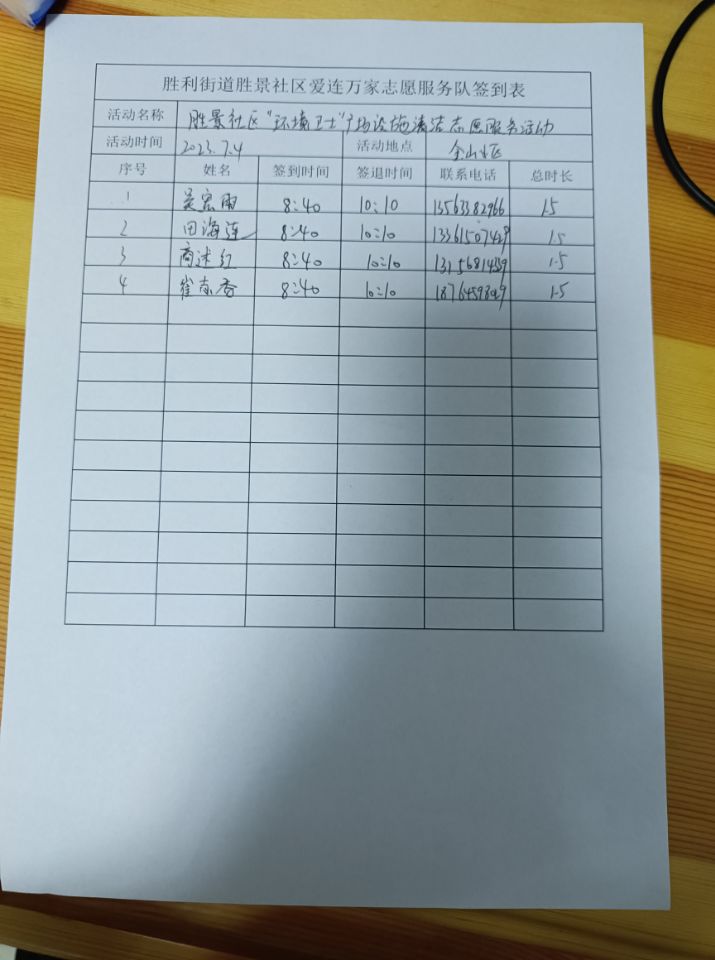 胜利街道胜景社区爱连万家志愿服务队签到表
活动名称 胜景社区“环境卫士”广场设施清洁志愿服务活动
活动时间 2023.7.4 活动地点
序号 姓名 签到时间 签退时间 联系电话 总时长
1 8:40 10:10 13563382966 1.5
2 田海莲 8:40 10:10 1.5
3 商述红 8:40 10:10 1.5
4 8:40 10:10 1.5